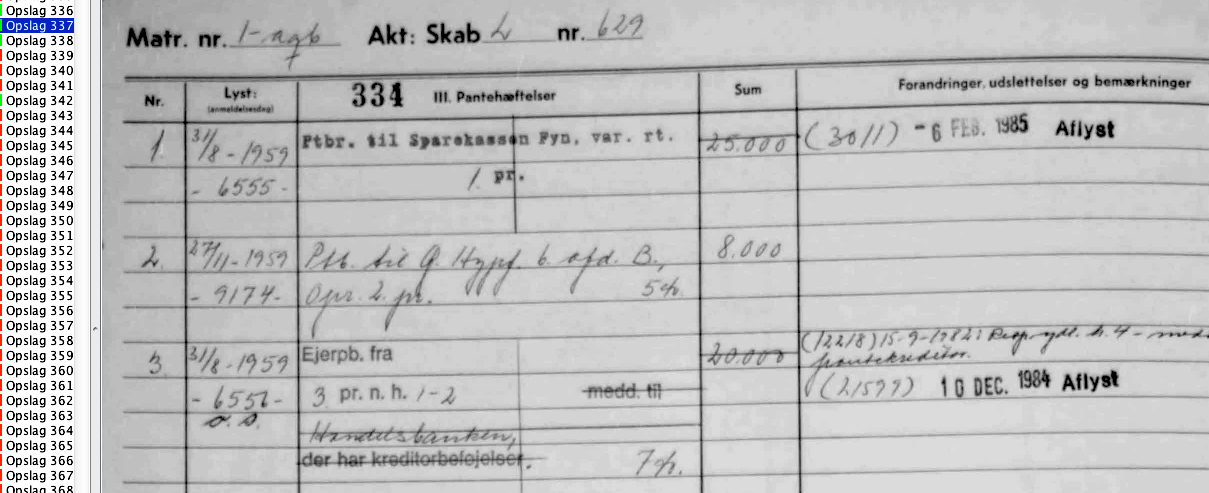 Opslag 336
Opslag 337
Opslag 338
Opslag 339
Opslag 340
Opslag 341
Opslag 342
Opslag 343
Opslag 344
Opslag 345
Opslag 346
Opslag 347
Opslag 348
Opslag 349
Opslag 350
Opslag 351
Opslag 352
Opslag 353
Opslag 354
Opslag 355
Opslag 356
Opslag 357
Opslag 358
Opslag 359
Opslag 360
Opslag 361
Opslag 362
Opslag 363
Opslag 364
Opslag 365
Opslag 366
Opslag 367
Opslag 368
Matr. nr. 1-agb Akt: Skab L nr. 629
Nr. Lyst: (anmeldelsesdag) 334 III. Pantehæftelser Sum Forandringer, udslettelser og bemærkninger
1. 31/8-1959 Ptbr. til Sparekassen Fyn, var. rt. 25.000 (3011) -6 FEB. 1985 Aflyst
- 6555- 1. pr.
2. 27/11-1959 Ptb. til Q. Hypf. 6. afd. B., 8.000
- 9174- Opr. 2. pr. 5%.
3. 31/8-1959 Ejerpb. fra 20.000 (12218) 15-9-1982:
pantekreditor.
- 6556- 3 pr. n. h. 1-2 medd. til (21599) 10 DEC. 1984 Aflyst
Handelsbanken,
der har kreditorbeføjelser. 7%.